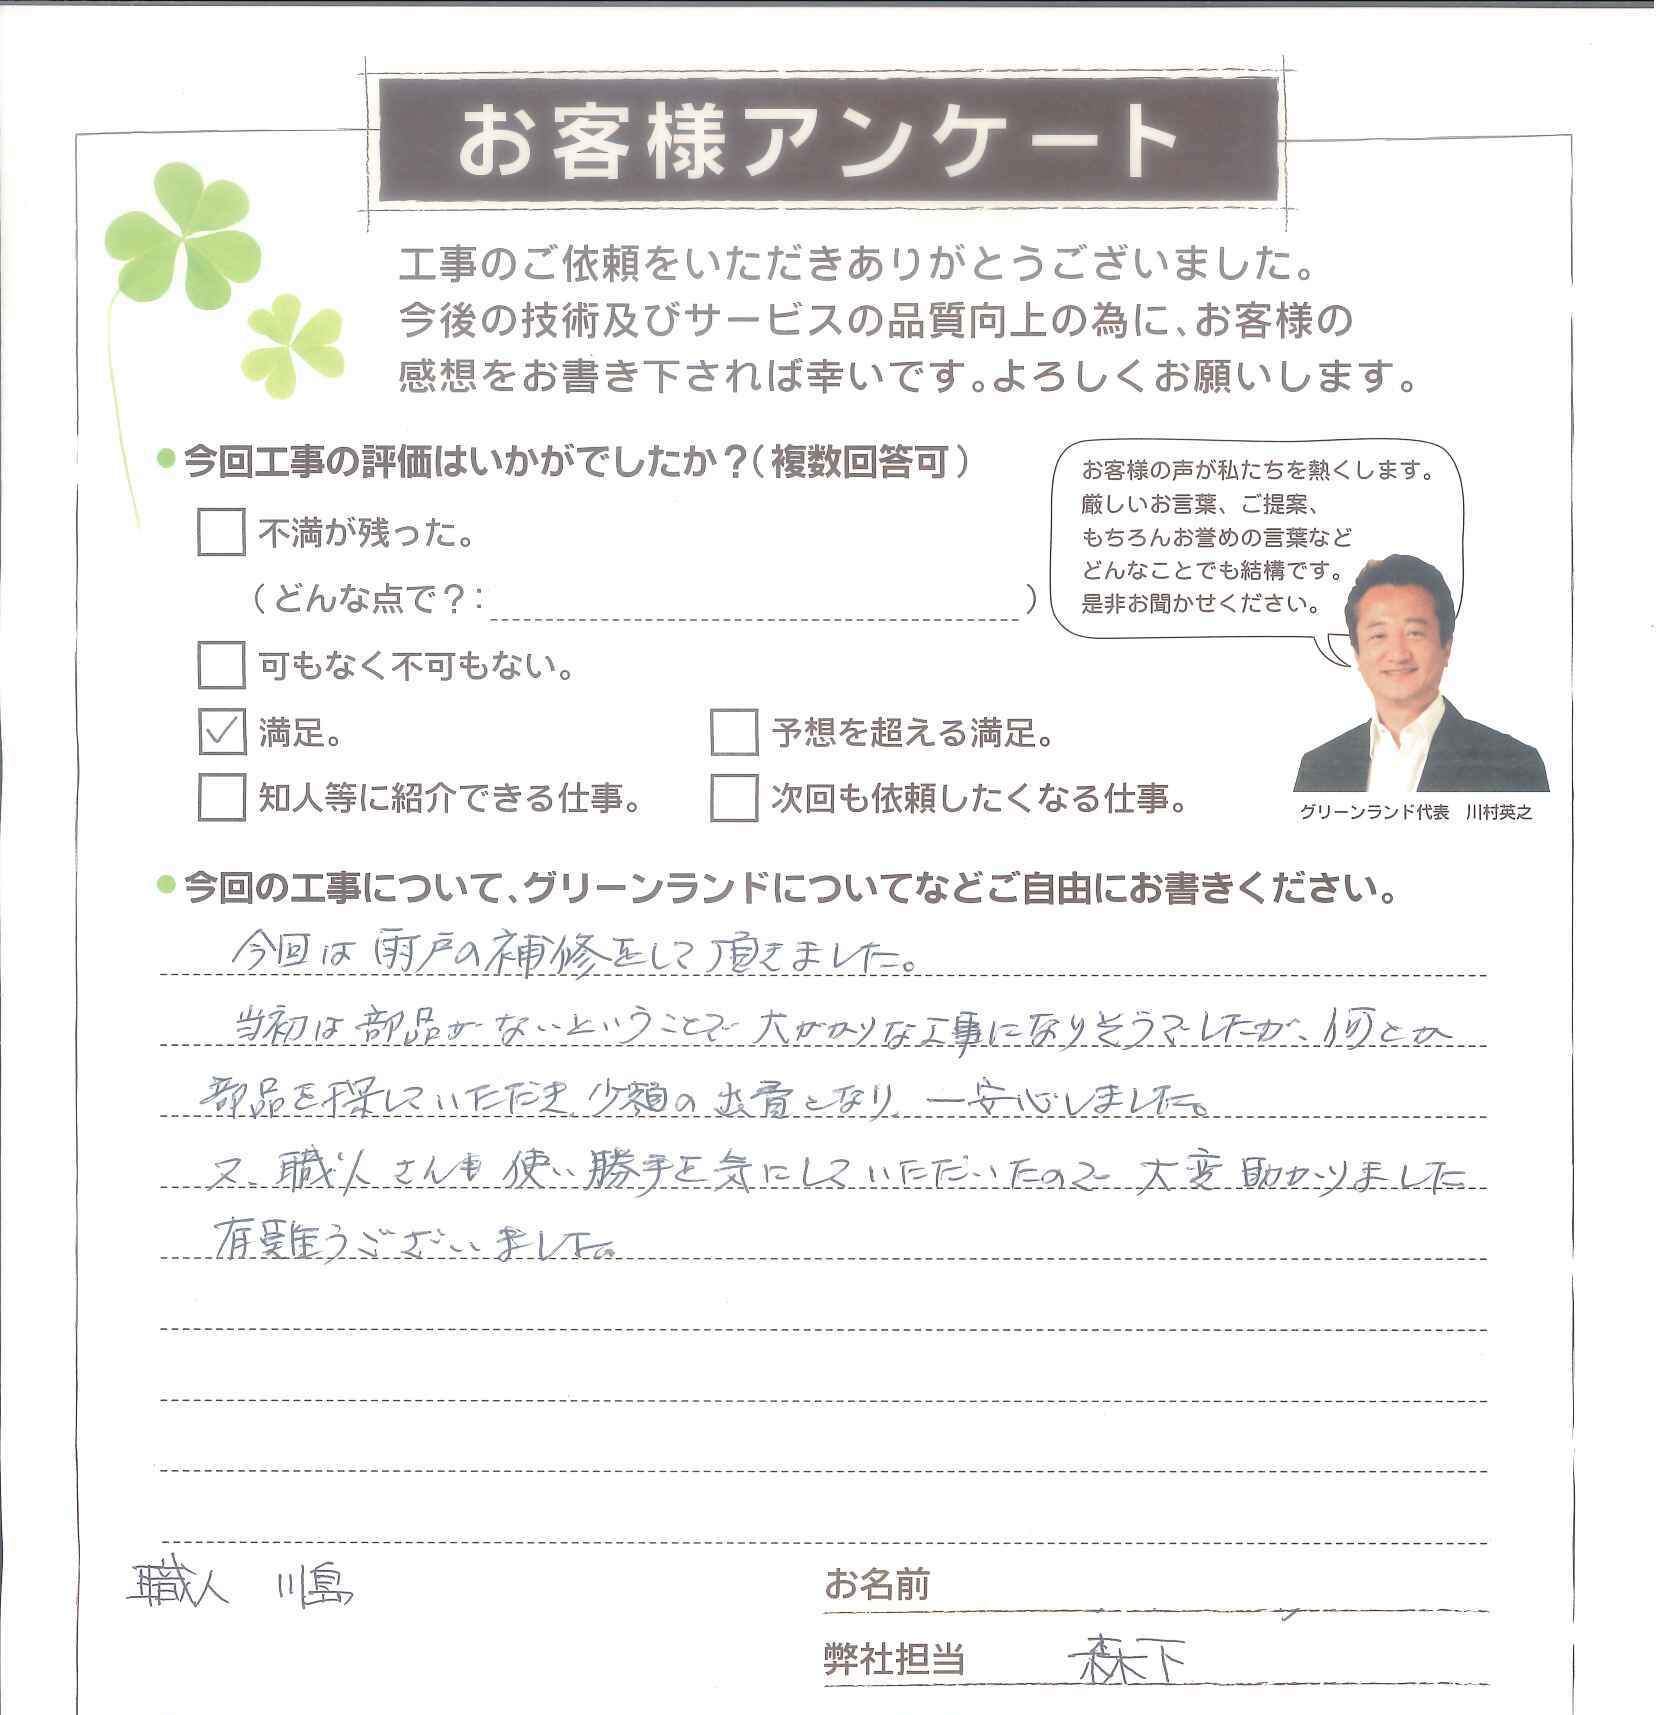 お客様アンケート
工事のご依頼をいただきありがとうございました。
今後の技術及びサービスの品質向上の為に、お客様の
感想をお書き下されば幸いです。よろしくお願いします。
今回工事の評価はいかがでしたか？（複数回答可）
不満が残った。
（どんな点で？：　）
可もなく不可もない。
✓ 満足。
予想を超える満足。
知人等に紹介できる仕事。
次回も依頼したくなる仕事。
お客様の声が私たちを熱くします。
厳しいお言葉、ご提案、
もちろんお誉めの言葉など
どんなことでも結構です。
是非お聞かせください。
グリーンランド代表　川村英之
今回の工事について、グリーンランドについてなどご自由にお書きください。
今回は雨戸の補修をして頂きました。
当初は部品がないということで大がかりな工事になりそうでしたが、何とか
部品を探していただき、少額の出費となり、一安心しました。
又、職人さんも使い勝手を気にしていただいたので大変助かりました
有難うございました。
職人　川島
お名前
弊社担当　森下